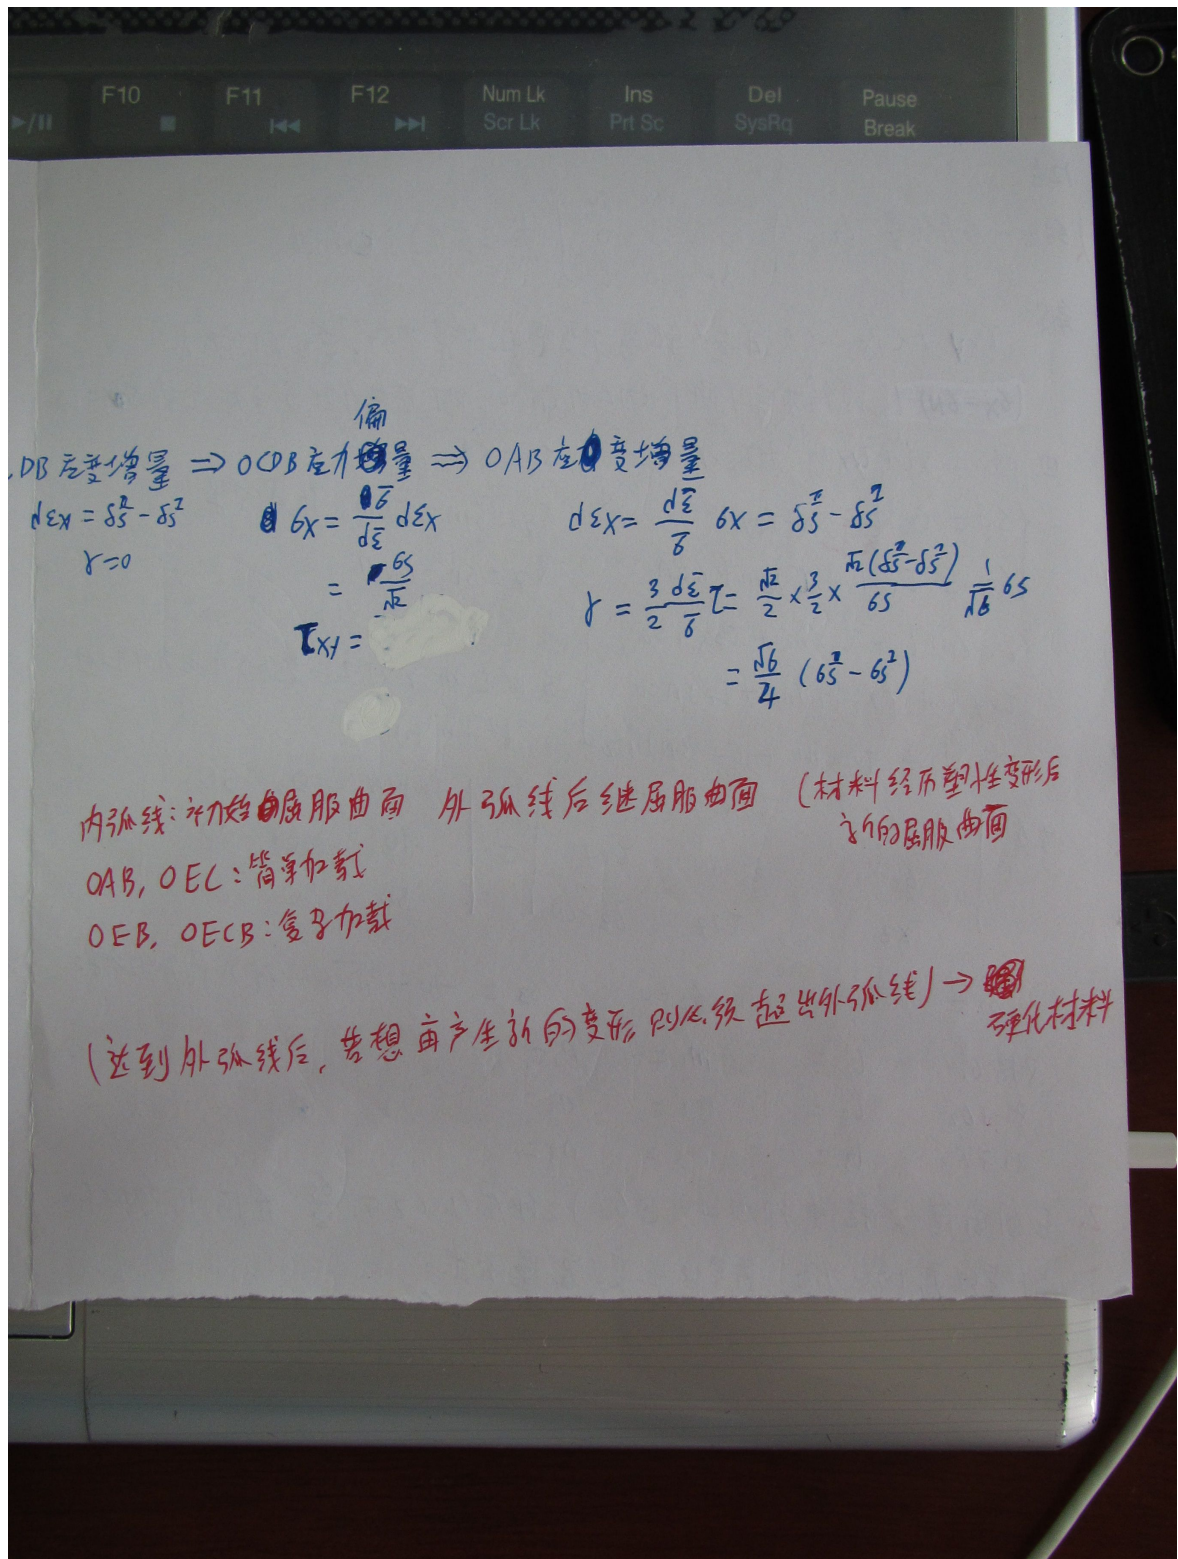 F10 F11 F12 Num Lk Ins Del Pause
Scr Lk Prt Sc SysRq Break
偏
DB应变增量 ⇒ OCDB应力量 ⇒ OAB应变增量
dεx = δs^Ⅱ - δs^2
γ=0
σx = dεx
= σs/√2
τxy =
dεx = dε̄/σ̄ σx = δs^Ⅱ - δs^2
γ = 3/2 dε̄/σ̄ τ = √2/2 × 3/2 × √2(δs^Ⅱ-δs^2)/σs 1/√6 σs
= √6/4 (σs^Ⅱ - σs^2)
内弧线:初始屈服曲面 外弧线后继屈服曲面 (材料经历塑性变形后
新的屈服曲面
OAB, OEC:简单加载
OEB, OECB:复杂加载
(达到外弧线后,若想再产生新的变形则必须超出外弧线) →
硬化材料